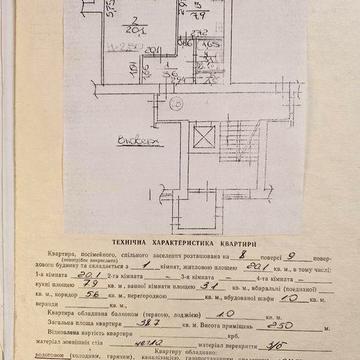 5,75
2
20,1
3
7,9
272
165
h-250
201
1
5,6
1,64
1,66
8 поверх
ТЕХНІЧНА ХАРАКТЕРИСТИКА КВАРТИРИ
Квартира, посімейного, спільного заселення розташована на 8 поверсі 9 повер-
(непотрібне закреслити)
хового будинку та складається з 1 кімнат, житловою площею 20,1 кв. м, в тому числі:
1-а кімната 20,1 2-га кімната кв. м, 3-я кімната кв. м, 4-а кімната кв. м,
кухні площею 7,9 кв. м, ванної кімнати площею 3,1 кв. м, вбиральні (поєднаної)
кв. м, коридор 5,6 кв. м, перегородкою кв. м, вбудованої шафи 1,0 кв. м,
веранди кв. м.
Квартира обладнана балконом (терасою, лоджією) 1,0 кв. м.
Загальна площа квартири 38,7 кв. м. Висота приміщень 2,50 м.
Відновлена вартість квартири крб.
матеріал зовнішніх стін матеріал перекриття з/б
Квартиру обладнано:
водогоном (холодним, гарячим), каналізацією,